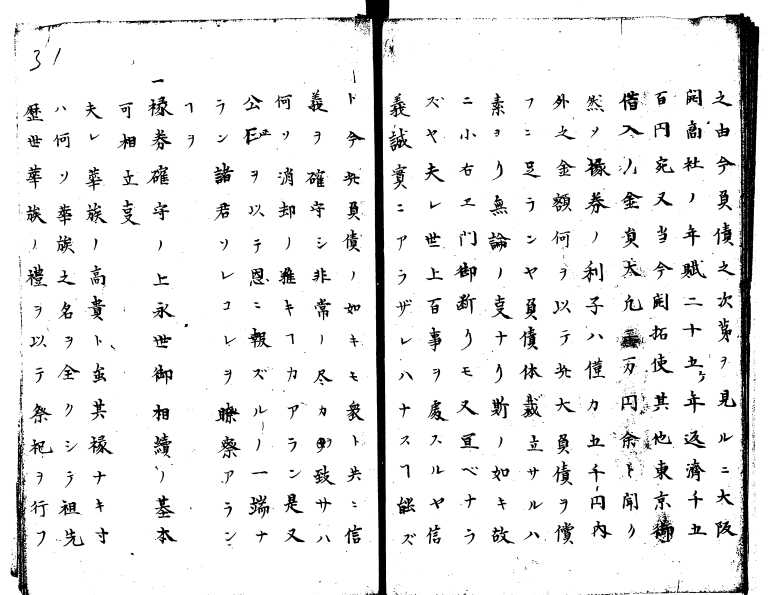 之由今負債之次第ヲ見ルニ大阪
開商社ノ年賦二十五ケ年返済千五
百円宛又当今開拓使其他東京
借入ノ金員大凡万円余ト聞ク
然ソ禄券ノ利子ハ僅カ五千円内
外之金額何ヲ以テ此大負債ヲ償
フニ足ランヤ負債体裁立サルハ
素ヨリ無論ノ叓ナリ斯ノ如キ故
ニ小右ヱ門御断リモ又宜ベナラ
ズヤ夫レ世上百事ヲ處スルヤ信
義誠實ニアラザレハナスヿ能ズ
ト今此負債ノ如キモ衆ト共ニ信
義ヲ確守シ非常ノ尽力ヲ致サハ
何ソ消却ノ難キヿカアラン是又
公ヲ以テ恩ニ報ズルノ一端ナ
ラン諸君ソレコレヲ瞭察アラン
ヿヲ
一禄券確守ノ上永世御相續ノ基本
可相立叓
夫レ華族ノ高貴ト虽其禄ナキ寸
ハ何ソ華族之名ヲ全クシテ祖先
歴世華族ノ禮ヲ以テ祭祀ヲ行フ
31